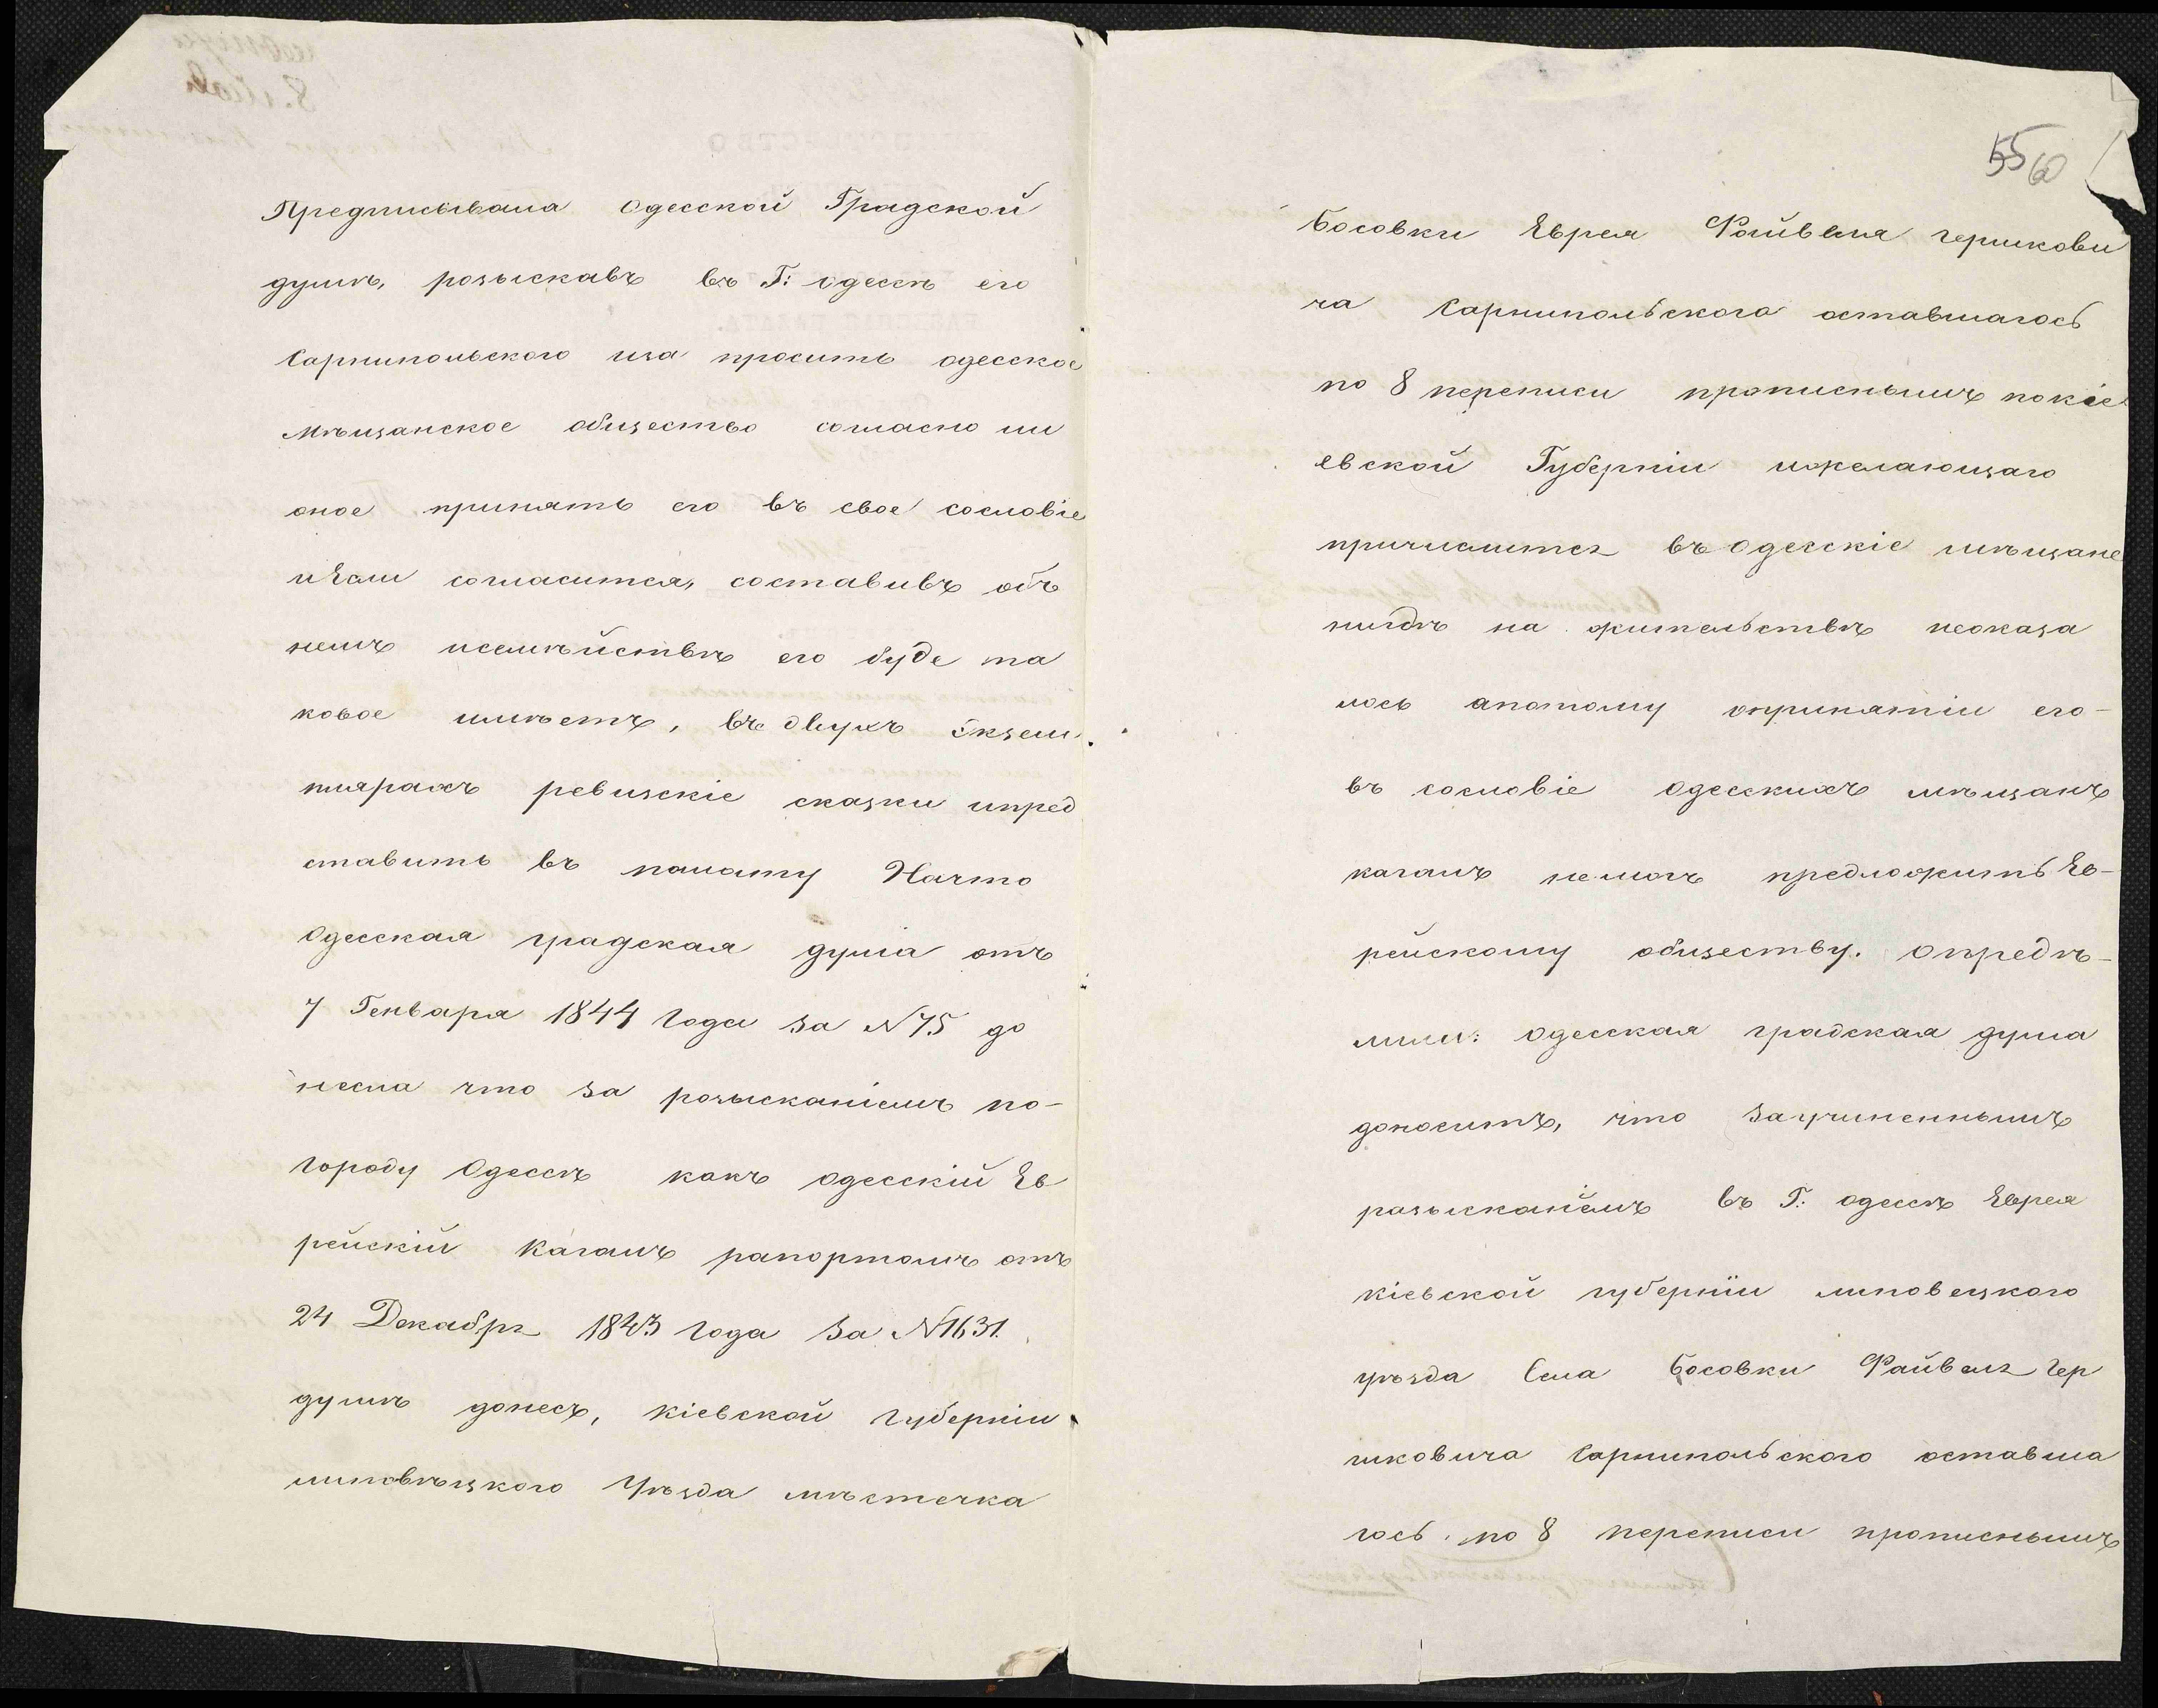 Предписывала Одесской Градской
думѣ, розыскавъ въ Г: Одессѣ его
Сарнипольского иза просить одесское
мѣщанское общество согласно ли
оное принять его въ свое сословіе
иѣсли согласится, составивъ объ
немъ исемѣйствѣ его буде та
ковое имѣетъ, въ двухъ екзем
плярахъ ревизскіе сказки ипред
ставить въ палату Начто
Одесская градская дума отъ
7 Генваря 1844 Года за №75 до
несла что за розысканіемъ по-
городу Одессѣ какъ одесскій Ев
рейскій Кагалъ рапортомъ отъ
24 Декабря 1843 Года за №1631.
думѣ донесъ, кіевской губерніи
липовѣцкого Уѣзда мѣстечка
55 60
Босовки Еврея Файвеля гершкови
ча Сарнипольского оставшагось
по 8 переписи прописнымъ покіе
евской Губерніи ижелающаго
причислится въ Одесскіе мѣщане
нигдѣ на жительствѣ неоказа
лось апотому опринятіи его-
въ сословіе Одесскихъ мѣщанъ
кагалъ немогъ предложить Ев-
рейскому обществу. Опредѣ-
лили: Одесская градская дума
доноситъ, что заучиненнымъ
розысканіемъ въ Г: Одессѣ Еврея
кіевской губерніи липовецкого
уѣзда Села Босовки Файвеля Гер
шковича Сарнипольского оставша
гось по 8 переписи прописнымъ